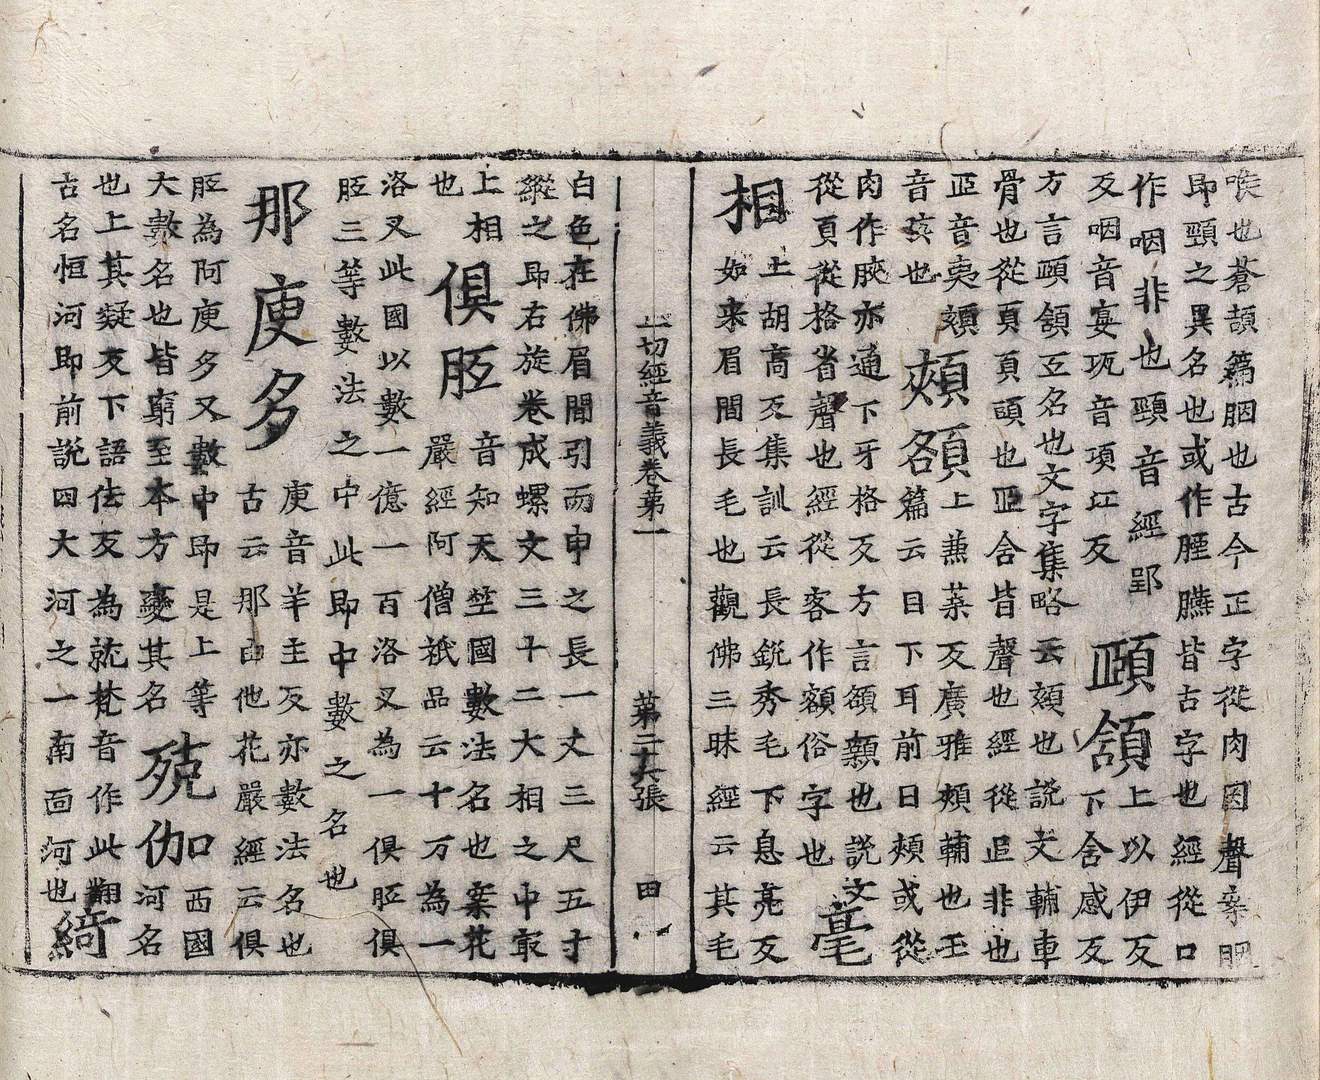 喉也蒼頡篇胭也古今正字從肉因聲案胭
即頸之異名也或作𦛁臙皆古字也經從口
作咽非也頸音經郢
反咽音宴㼚音項江反
頤頷
上以伊反
下含感反
方言頤頷互名也文字集略云頦也説文輔車
骨也從頁頁頭也𦣝含皆聲也經從𦣞非也
𦣝音夷頦
音孩也
頰額
上蒹葉反廣雅頰輔也玉
篇云目下耳前曰頰或從
肉作脥亦通下牙格反方言額顙也説文
從頁從格省聲也經從客作額俗字也
毫
相
上胡高反集訓云長鋭秀毛下息亮反
如来眉間長毛也觀佛三昧經云其毛
一切經音義卷第一
第二十六張
田
白色在佛眉間引而申之長一丈三尺五寸
縱之即右旋卷成螺文三十二大相之中㝡
上相
也
俱胝
音知天竺國數法名也案花
嚴經阿僧祇品云十万為一
洛叉此國以數一億一百洛叉為一俱胝俱
胝三等數法之中此即中數之名也
那庾多
庾音羊主反亦數法名也
古云那由他花嚴經云俱
胝為阿庾多又數中即是上等
大數名也皆窮至本方變其名
殑伽
西國
河名
也上其凝反下語佉反為就梵音作此翻
古名恒河即前説四大河之一南面河也
綺